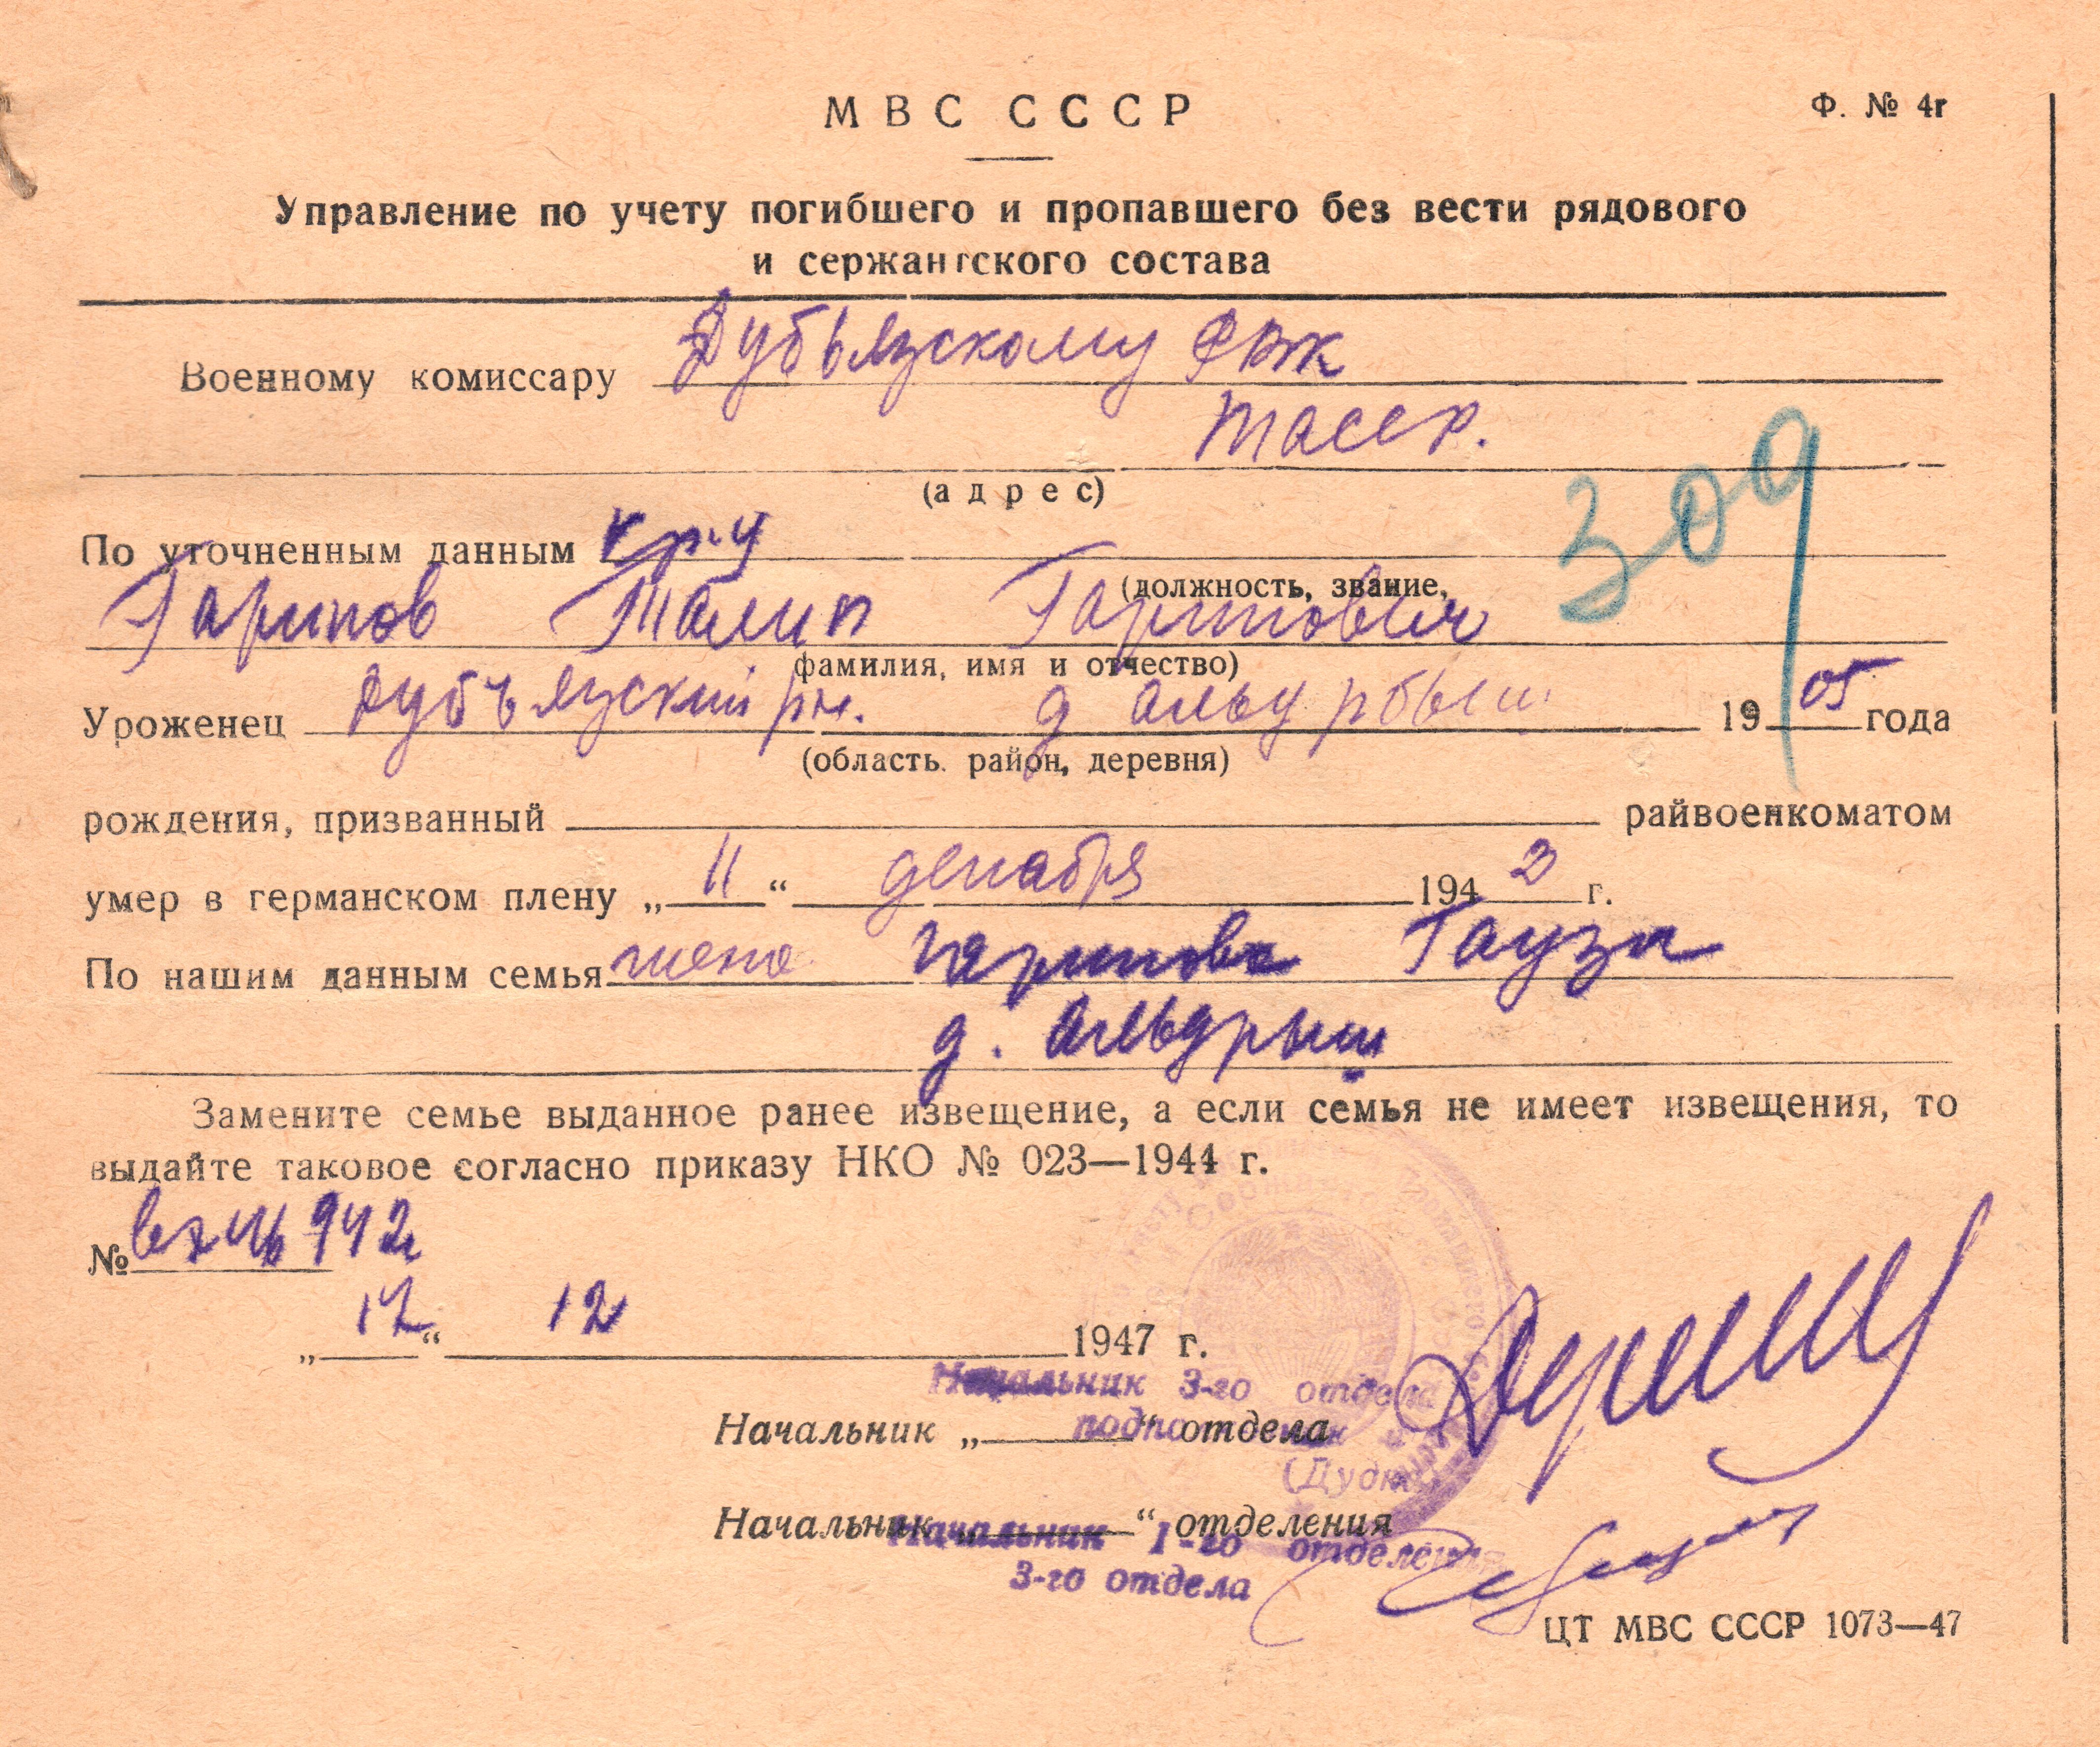 МВС СССР
Ф. № 4г
Управление по учету погибшего и пропавшего без вести рядового
и сержантского состава
Военному комиссару Дубьязскому РВК
ТАССР.
(адрес)
По уточненным данным кр-ц
(должность, звание,
Гарипов Талип Гарипович
фамилия, имя и отчество)
309
Уроженец Дубъязский рн. д Альдрбыш 1905 года
(область. район, деревня)
рождения, призванный райвоенкоматом
умер в германском плену „11“ декабря 1942 г.
По нашим данным семья жена Гарипова Гауза
д. Альдрыш
Замените семье выданное ранее извещение, а если семья не имеет извещения, то
выдайте таковое согласно приказу НКО № 023—1944 г.
№ 942
„17“ 12 1947 г.
Начальник 3-го отдела
Начальник „ “ отдела
Начальник „ “ отделения
Начальник I-го отделения
3-го отдела
ЦТ МВС СССР 1073—47